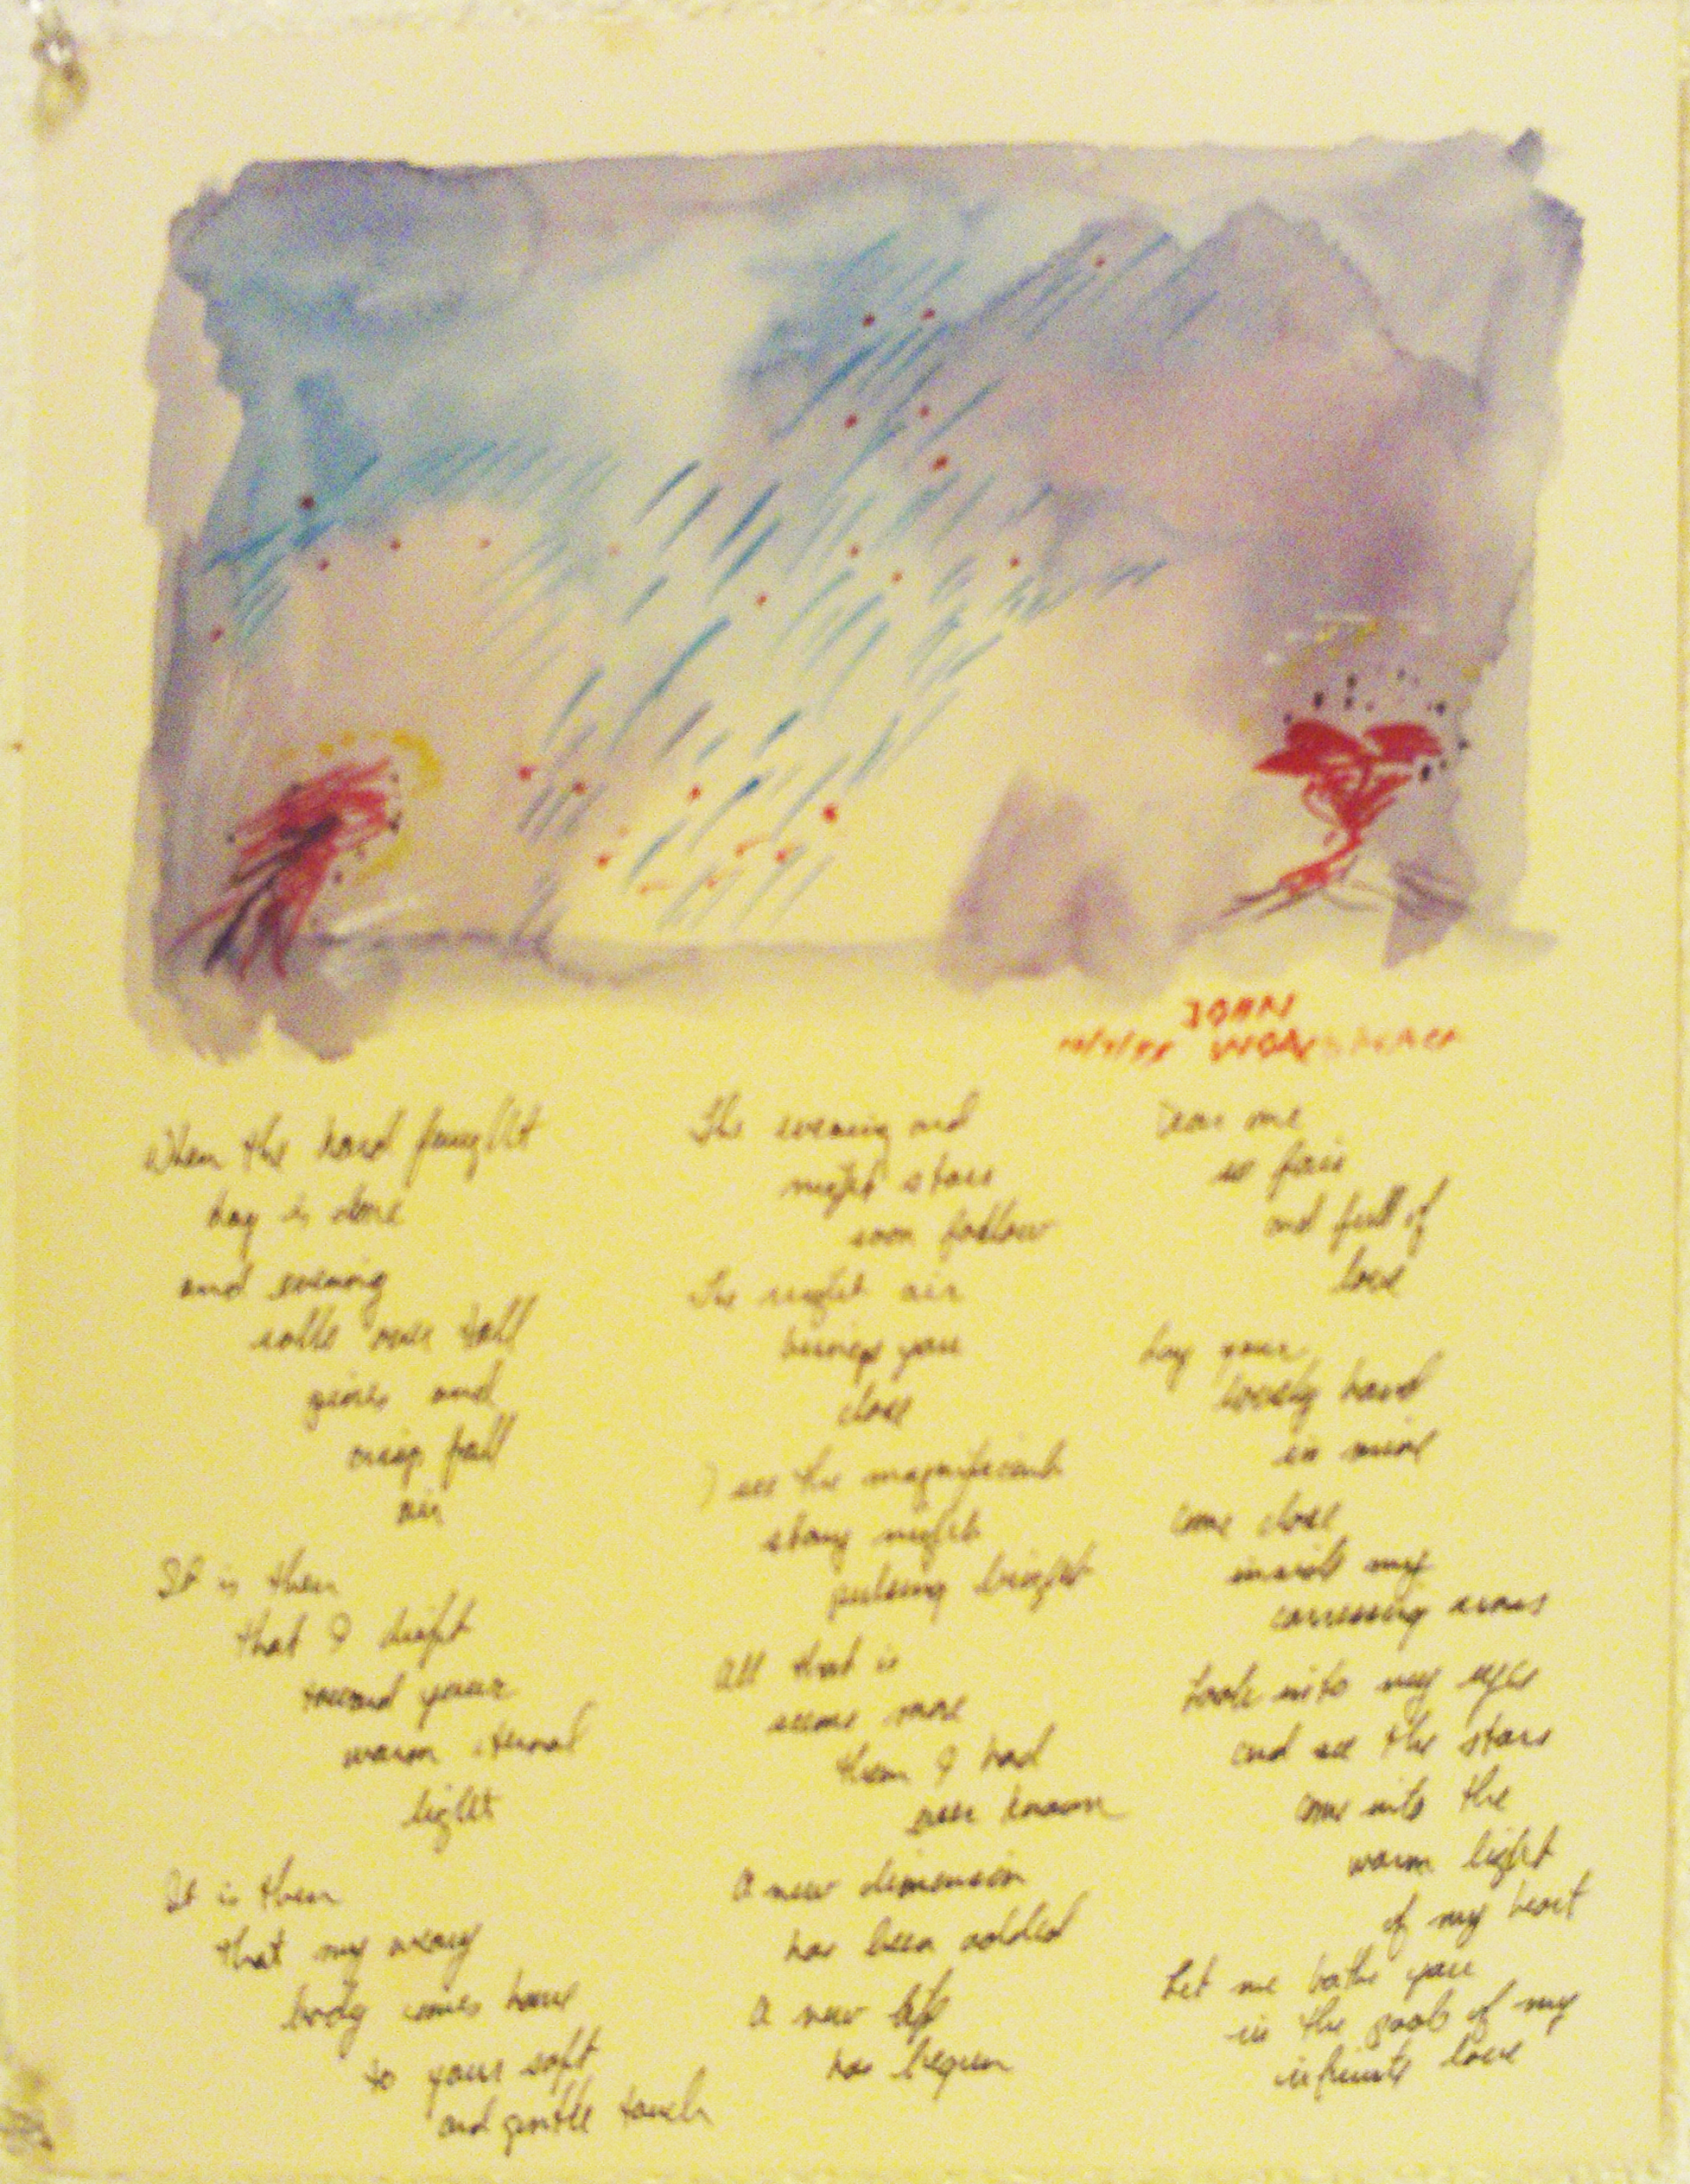 JOHN
When the hard fought
day is done
and evening
rolls over tall
pines and
crisp fall
air
It is then
that I drift
toward your
warm eternal
light
It is then
that my weary
body comes home
to your soft
and gentle touch
The evening and
night stars
soon follow
The night air
brings you
close
I see the magnificent
stary night
pulsing bright
All that is
seems more
then I had
ever known
A new dimension
has been added
A new life
has begun
Dear one
so fair
and full of
love
Lay your
lovely hand
in mine
Come close
inside my
carressing arms
Look into my eyes
and see the stars
come into the
warm light
of my heart
Let me bathe you
in the pool of my
infinite love